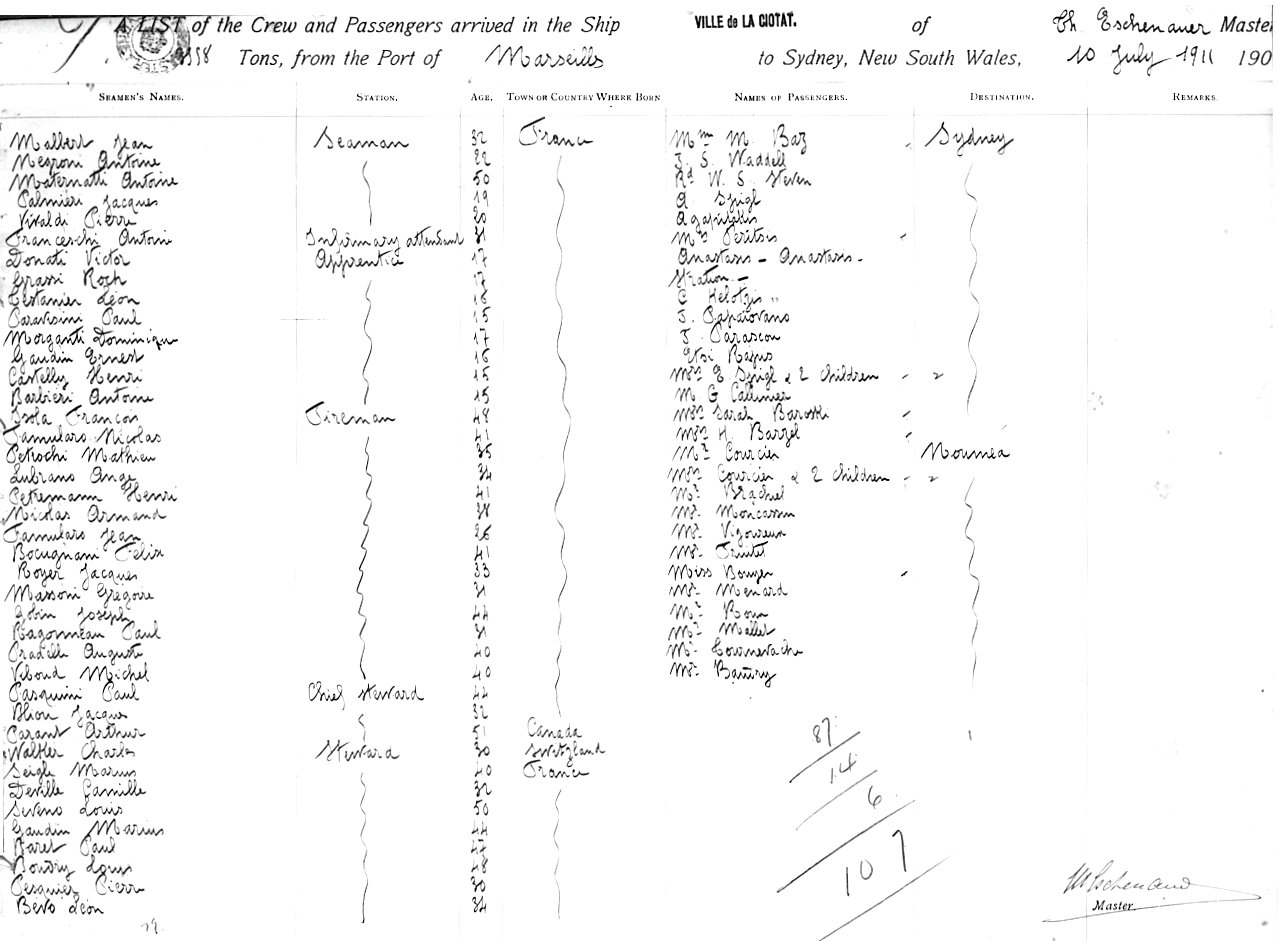 A LIST of the Crew and Passengers arrived in the Ship VILLE de LA CIOTAT. of Ch. Eschenauer Master
Tons, from the Port of Marseills to Sydney, New South Wales, 10 July 1911 190
SEAMEN'S NAMES. STATION. AGE. TOWN OR COUNTRY WHERE BORN NAMES OF PASSENGERS. DESTINATION. REMARKS.
Malbert Jean Seaman 32 France Mme M. Baz Sydney
Negroni Antoine 22 J. S. Waddell
Maternatti Antoine 50 Rd W. S. Steven
Palmieri Jacques 19 A Szigl
Vivaldi Pierre 20
Franceschi Antoine Infirmary attendant 31 Mrs Peritsis
Donati Victor Apprentice 17 Anastasis - Anastasis -
Grassi Roch 17 Stration -
Costanier Léon 16 C Kelotzis "
Paravisini Paul 15 J. Papaiovano
Morganti Dominique 17 J. Parascou
Gaudin Ernest 16
Castelly Henri 15 Mrs E Szigl & 2 Children " 2
Barbieri Antoine 15 M G Callinier
Isola François Fireman 48 Mrs Sarah Baroski
Famularo Nicolas 41 Mrs H. Barzel
Petrochi Mathieu 35 Mr Courcier Noumea
Lubrano Ange 34 Mrs Courcier & 2 Children " 2
Petremann Henri 41 Mr Brachiel
Nicolas Armand 38 Mr Moncassin
Famularo Jean 26 Mr Vigoureux
Bocugnani Felix 41 Mr Truitet
Royer Jacques 33 Miss Bouyer
Massoni Gregoire 31 Mr Menard
Gobin Joseph 44 Mr Roux
Ragonneau Paul 31 Mr Mallet
Pradelle Auguste 40 Mr Tournevache
Viboud Michel 40 Mr Baudry
Pasquini Paul Chief steward 44
Blion Jacques 32
Carant Arthur 51 Canada
Walther Charles Steward 30 Switzland
Seigle Marius 40 France
Deville Camille 32
Seveno Louis 50
Gaudin Marius 44
Baret Paul 47
Boudry Louis 48
Pesquier Pierre 30
Bevo Léon 34
87
14
6
107
Master.